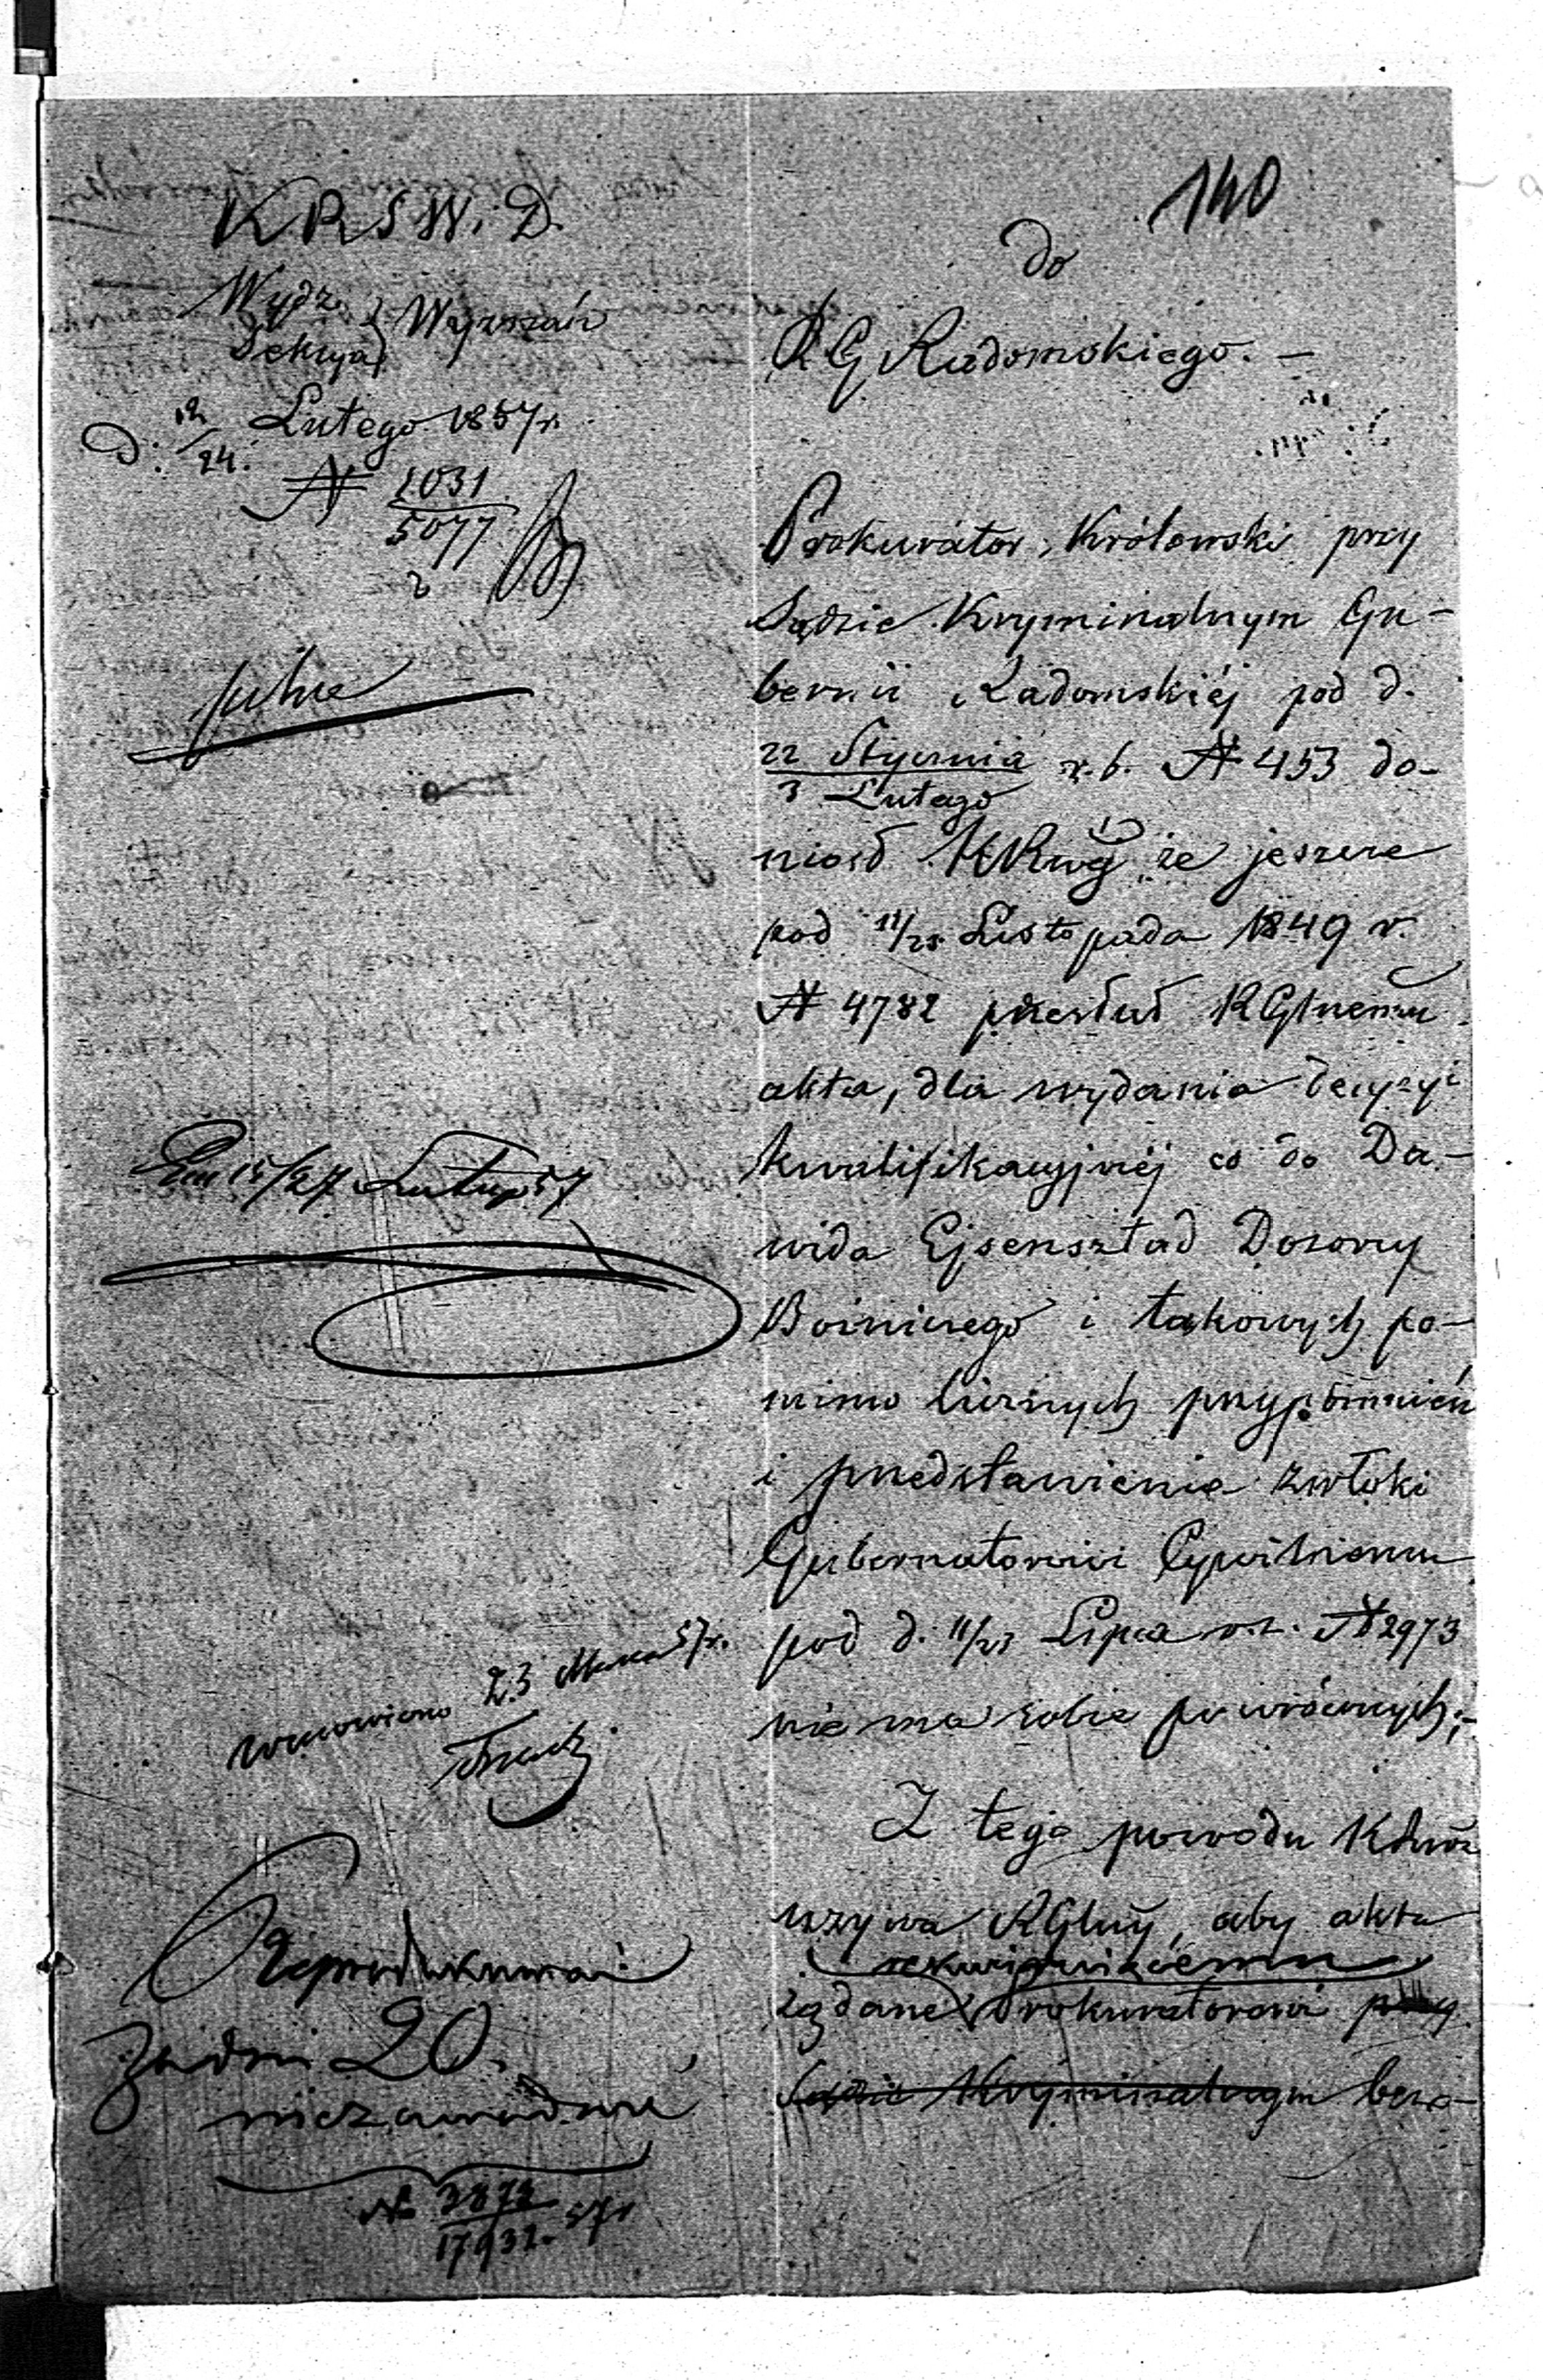 140
K R S W. i D.
Wydz.
Sekcya } Wyznań
D: 12/24. Lutego 1857 r.
N 1031
5077
pilne
Em 15/27 Lutego 57
wznowiono 23 Marca 57 r.
Reprodukować
za dni 20.
niezawodnie
N 3878
17932. 57 r
do
R G Radomskiego. —
Prokurator Królewski przy
Sądzie Kryminalnym Gu-
bernii Radomskiéj pod d.
22 Stycznia
3 Lutego r. b. N 453 do-
niosł że jeszcze
pod 11/23 Listopada 1849 r.
N 4782 przesłał RGlnemu
akta, dla wydania decyzyi
kwalifikacyjnéj co do Da-
wida Ejsensztad Dozorcy
Bożniczego i takowych po-
mimo licznych przypomnień
i przedstawienia zwłoki
Gubernatorowi Cywilnemu
pod d. 11/23 Lipca N 2973
nie ma sobie powróconych;-
Z tego powodu
wzywa RGlny, aby akta
rekwirującemu
żądane Prokuratorowi przy
Sądzie Kryminalnym bezo-